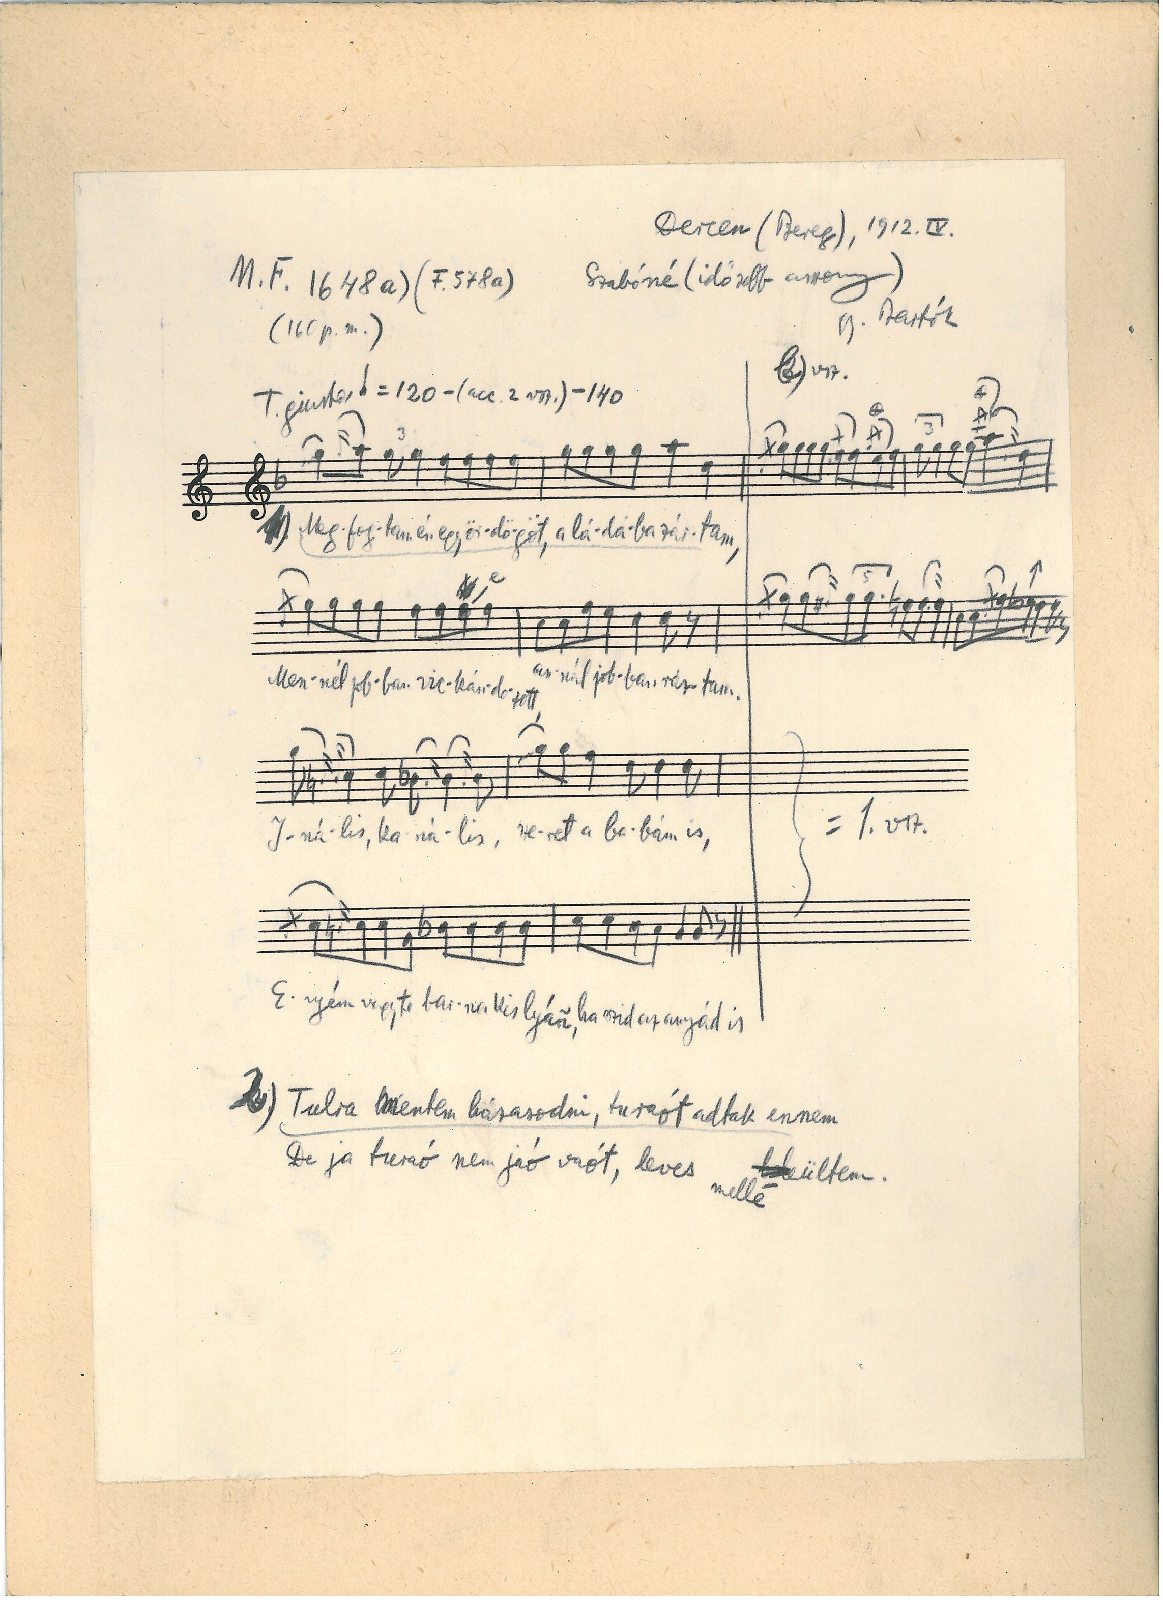 Dercen (Bereg), 1912. IV.
M.F. 1648a) (F. 578a)
Szabóné (idősebb asszony)
(160 p.m.)
gy. Bartók
2) vsz.
T. giusto, ♩ = 120 - (acc. 2 vsz.) - 140
3
3
1) Meg-fog-tam én egy ör-dö-göt, a lá-dá-ba zár-tam,
5
Men-nél job-ban ric-kán-do-zott, an-nál job-ban ráz-tam.
I-ná-lis, ka-ná-lis, sze-ret a ba-bám is,
= 1. vsz.
E-nyém vagy te bar-na kis lyáñ, ha szid az anyád is
2) Tulra mentem házasodni, turaót adtak ennem
De ja turaó nem jaó vaót, leves mellé ültem.